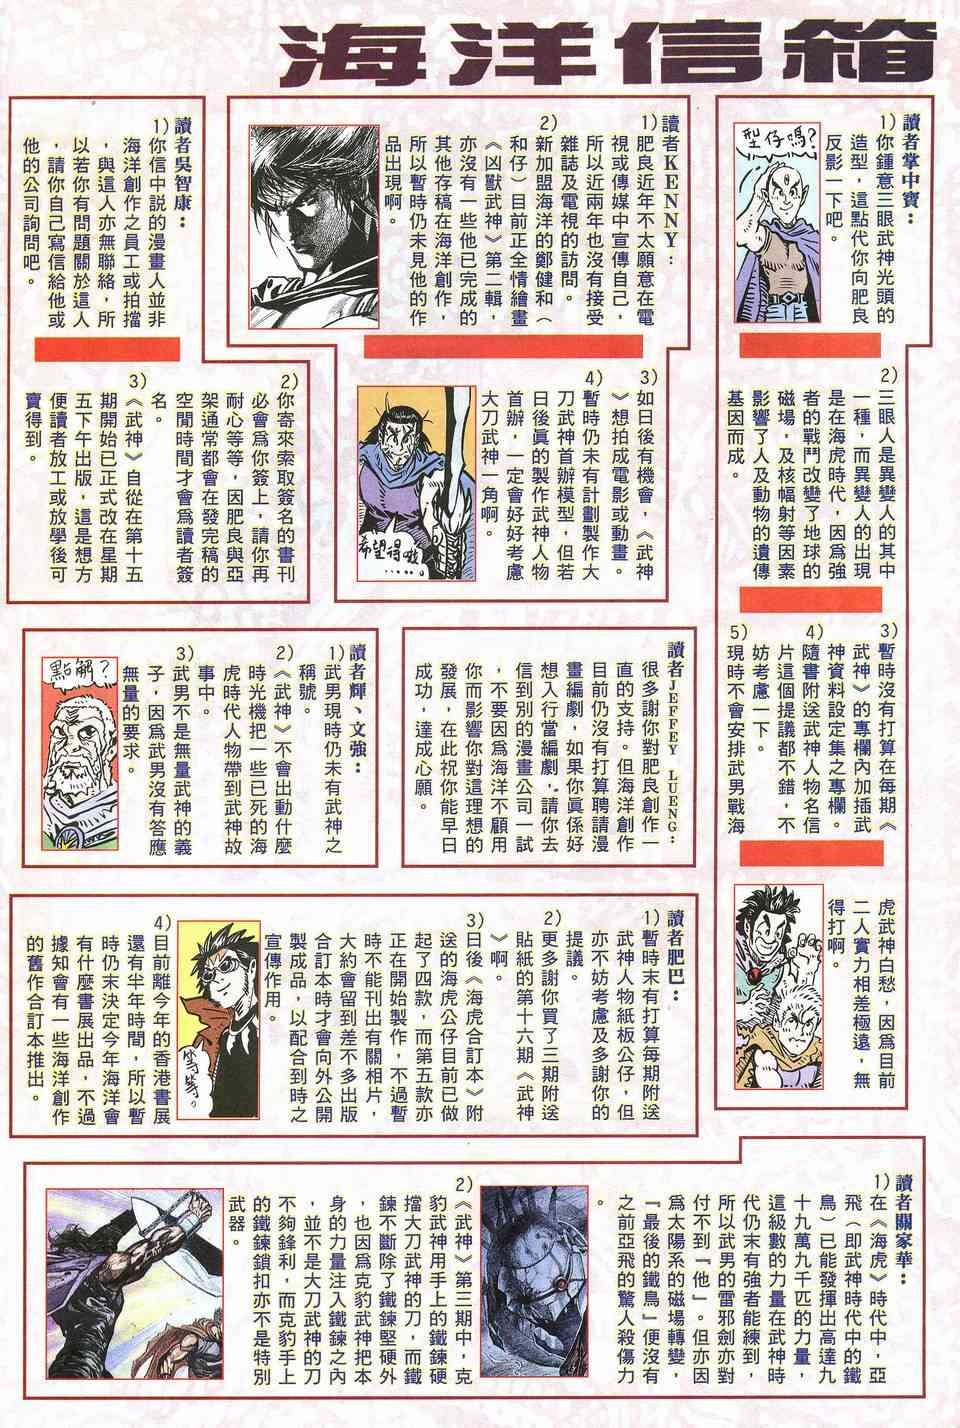 海洋信箱
讀者掌中寶：
1)你鍾意三眼武神光頭的
造型，這點代你向肥良
反影一下吧。
型仔嗎？
2)三眼人是異變人的其中
一種，而異變人的出現
是在海虎時代，因爲強
者的戰鬥改變了地球的
磁場，及核幅射等因素
影響了人及動物的遺傳
基因而成。
3)暫時沒有打算在每期《
武神》的專欄內加插武
神資料設定集之專欄。
4)隨書附送武神人物名信
片這個提議都不錯，不
妨考慮一下。
5)現時不會安排武男戰海
虎武神白愁，因爲目前
二人實力相差極遠，無
得打啊。
讀者KENNY：
1)肥良近年不太願意在電
視或傳媒中宣傳自己，
所以近兩年也沒有接受
雜誌及電視的訪問。
2)新加盟海洋的鄭健和（
和仔）目前正全情繪畫
《凶獸武神》第二輯，
亦沒有一些他已完成的
其他存稿在海洋創作，
所以暫時仍未見他的作
品出現啊。
3)如日後有機會，《武神
》想拍成電影或動畫。
4)暫時仍未有計劃製作大
刀武神首辦模型，但若
日後真的製作武神人物
首辦，一定會好好考慮
大刀武神一角啊。
希望得啦……
讀者吳智康：
1)你信中説的漫畫人並非
海洋創作之員工或拍擋
，與這人亦無聯絡，所
以若你有問題關於這人
，請你自己寫信給他或
他的公司詢問吧。
2)你寄來索取簽名的書刊
必會爲你簽上，請你再
耐心等等，因肥良與亞
架通常都會在發完稿的
空閒時間才會爲讀者簽
名。
3)《武神》自從在第十五
期開始已正式改在星期
五下午出版，這是想方
便讀者放工或放學後可
賣得到。
讀者JEFFEY LUENG：
很多謝你對肥良創作一
直的支持。但海洋創作
目前仍沒有打算聘請漫
畫編劇，如果你真係好
想入行當編劇，請你去
信到別的漫畫公司一試
，不要因爲海洋不顧用
你而影響你對這理想的
發展，在此祝你能早日
成功，達成心願。
讀者輝、文強：
1)武男現時仍未有武神之
稱號。
2)《武神》不會出動什麼
時光機把一些已死的海
虎時代人物帶到武神故
事中。
3)武男不是無量武神的義
子，因爲武男沒有答應
無量的要求。
點解？
讀者肥巴：
1)暫時末有打算每期附送
武神人物紙板公仔，但
亦不妨考慮及多謝你的
提議。
2)更多謝你買了三期附送
貼紙的第十六期《武神
》啊。
3)日後《海虎合訂本》附
送的海虎公仔目前已做
起了四款，而第五款亦
正在開始製作，不過暫
時不能刊出有關相片，
大約會留到差不多出版
合訂本時才會向外公開
製成品，以配合到時之
宣傳作用。
等等。
4)目前離今年的香港書展
還有半年時間，所以暫
時仍末決定今年海洋會
有什麼書展出品，不過
據知會有一些海洋創作
的舊作合訂本推出。
讀者關家華：
1)在《海虎》時代中，亞
飛（即武神時代中的鐵
鳥）已能發揮出高達九
十九萬九千匹的力量，
這級數的力量在武神時
代仍末有強者能練到，
所以武男的雷邪劍亦對
付不到『他』。但亦因
爲太陽系的磁場轉變，
『最後的鐵鳥』便沒有
之前亞飛的驚人殺傷力
。
2)《武神》第三期中，克
豹武神用手上的鐵鍊硬
擋大刀武神的刀，而鐵
鍊不斷除了鐵鍊堅硬外
，也因爲克豹武神把本
身的力量注入鐵鍊之內
，並不是大刀武神的刀
不夠鋒利，而克豹手上
的鐵鍊鎖扣亦不是特別
武器。